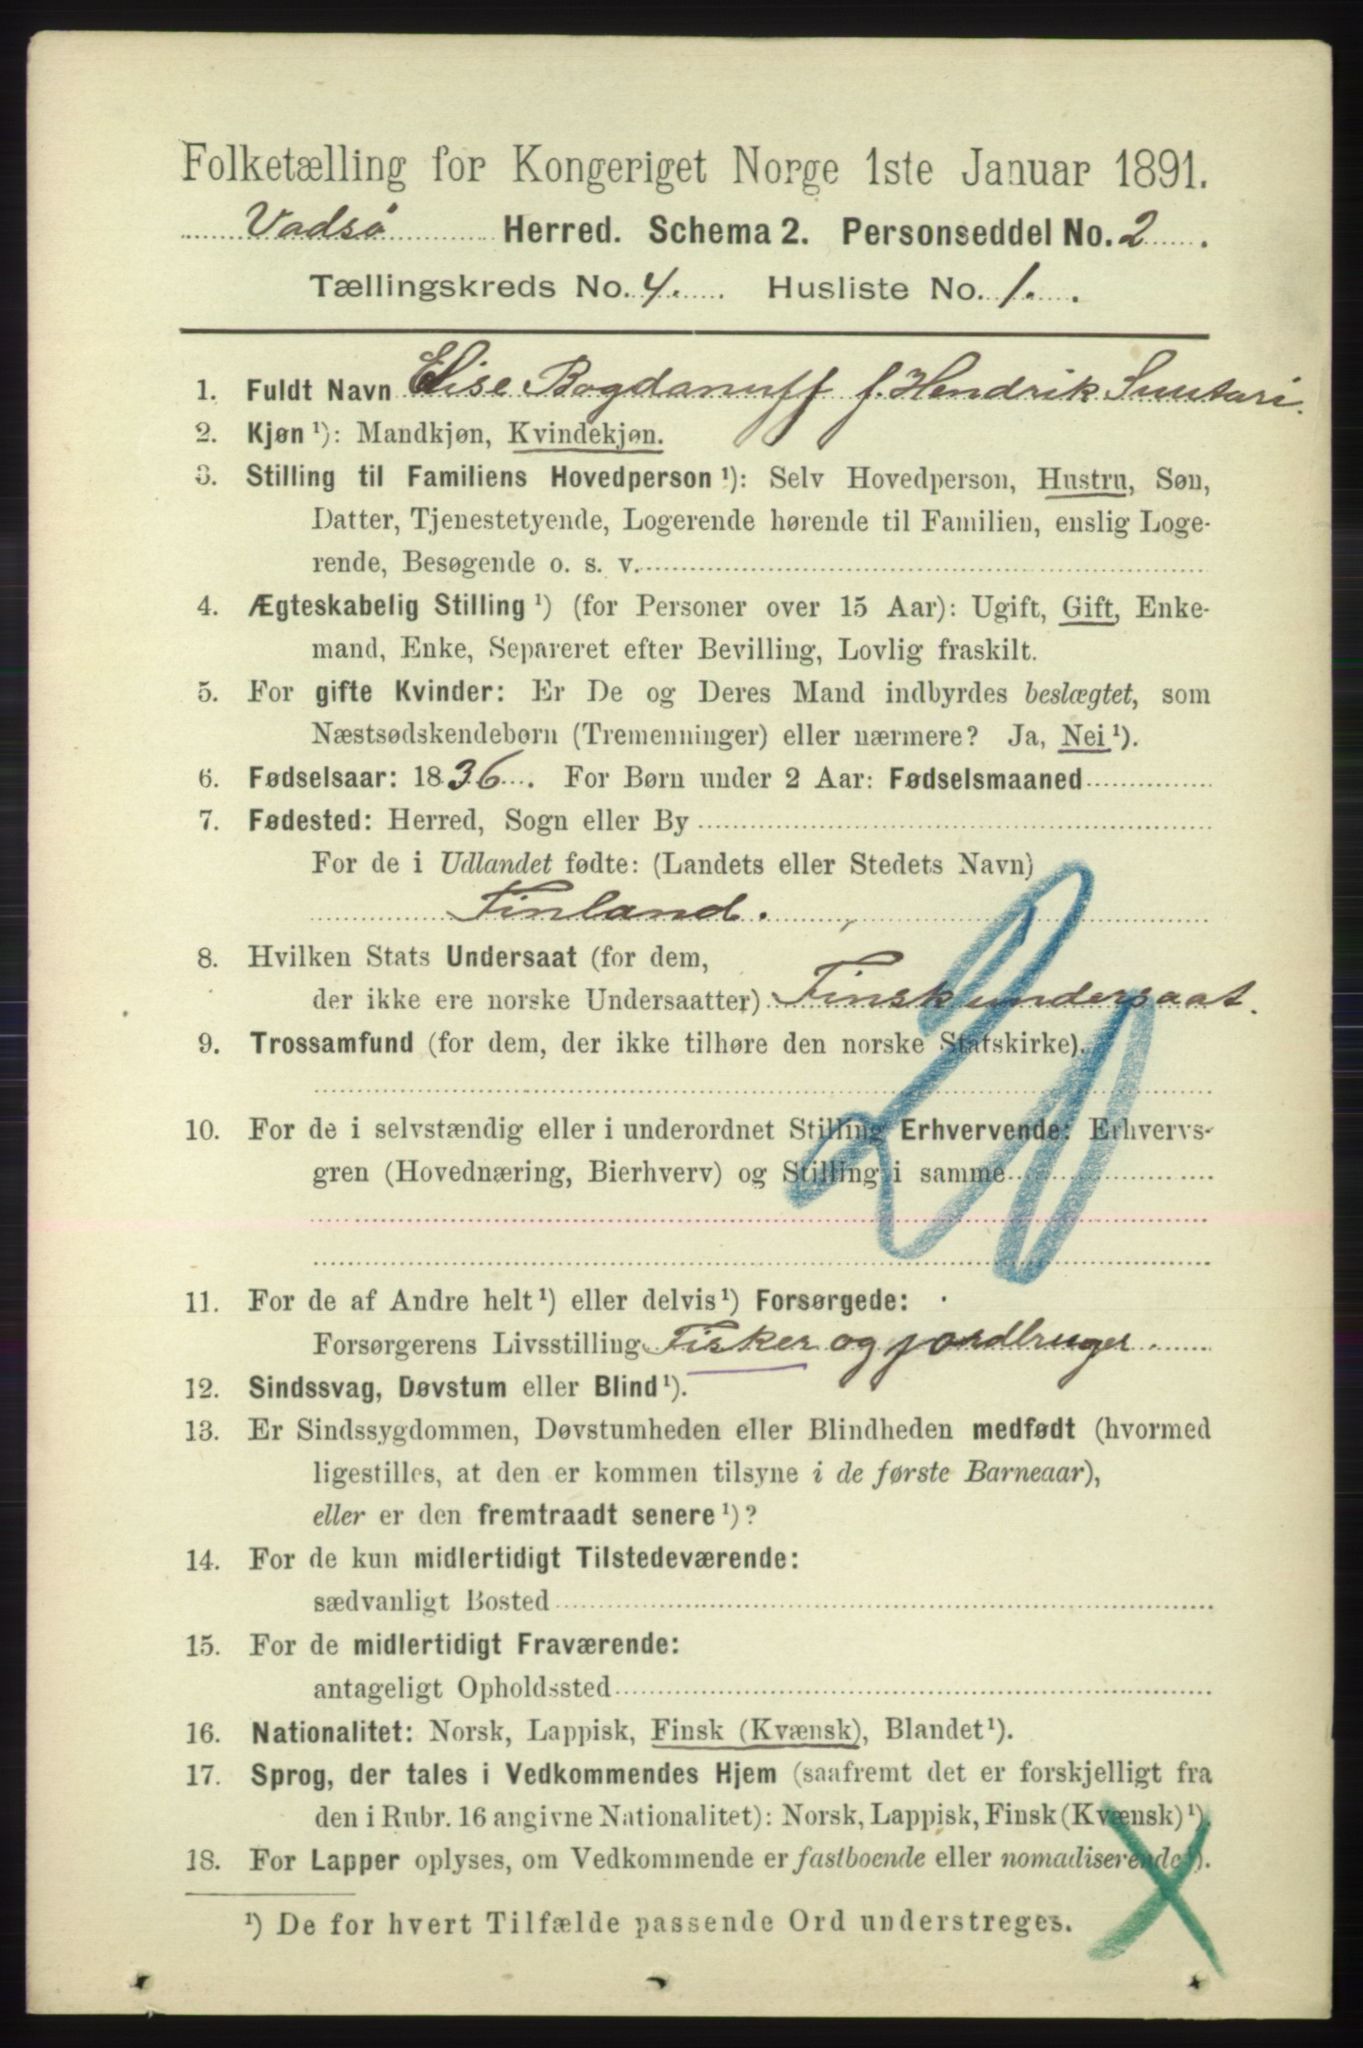 Folketælling for Kongeriget Norge 1ste Januar 1891.
Vadsø Herred. Schema 2. Personseddel No. 2.
Tællingskreds No. 4. Husliste No. 1.
1. Fuldt Navn Elise Bogdanuff f. Hendrik Suutari.
2. Kjøn¹): Mandkjøn, Kvindekjøn.
3. Stilling til Familiens Hovedperson¹): Selv Hovedperson, Hustru, Søn,
Datter, Tjenestetyende, Logerende hørende til Familien, enslig Loge-
rende, Besøgende o. s. v.
4. Ægteskabelig Stilling¹) (for Personer over 15 Aar): Ugift, Gift, Enke-
mand, Enke, Separeret efter Bevilling, Lovlig fraskilt.
5. For gifte Kvinder: Er De og Deres Mand indbyrdes beslægtet, som
Næstsødskendebørn (Tremenninger) eller nærmere? Ja, Nei¹).
6. Fødselsaar: 1836. For Børn under 2 Aar: Fødselsmaaned
7. Fødested: Herred, Sogn eller By
For de i Udlandet fødte: (Landets eller Stedets Navn)
Finland.
8. Hvilken Stats Undersaat (for dem,
der ikke ere norske Undersaatter) Finsk undersaat.
9. Trossamfund (for dem, der ikke tilhøre den norske Statskirke).
10. For de i selvstændig eller i underordnet Stilling Erhvervende: Erhvervs-
gren (Hovednæring, Bierhverv) og Stilling i samme
11. For de af Andre helt¹) eller delvis¹) Forsørgede:
Forsørgerens Livsstilling Fisker og jordbruger.
12. Sindssvag, Døvstum eller Blind¹).
13. Er Sindssygdommen, Døvstumheden eller Blindheden medfødt (hvormed
ligestilles, at den er kommen tilsyne i de første Barneaar),
eller er den fremtraadt senere¹)?
14. For de kun midlertidigt Tilstedeværende:
sædvanligt Bosted
15. For de midlertidigt Fraværende:
antageligt Opholdssted
16. Nationalitet: Norsk, Lappisk, Finsk (Kvænsk), Blandet¹).
17. Sprog, der tales i Vedkommendes Hjem (saafremt det er forskjelligt fra
den i Rubr. 16 angivne Nationalitet): Norsk, Lappisk, Finsk (Kvænsk)¹).
18. For Lapper oplyses, om Vedkommende er fastboende eller nomadiserende¹).
¹) De for hvert Tilfælde passende Ord understreges.